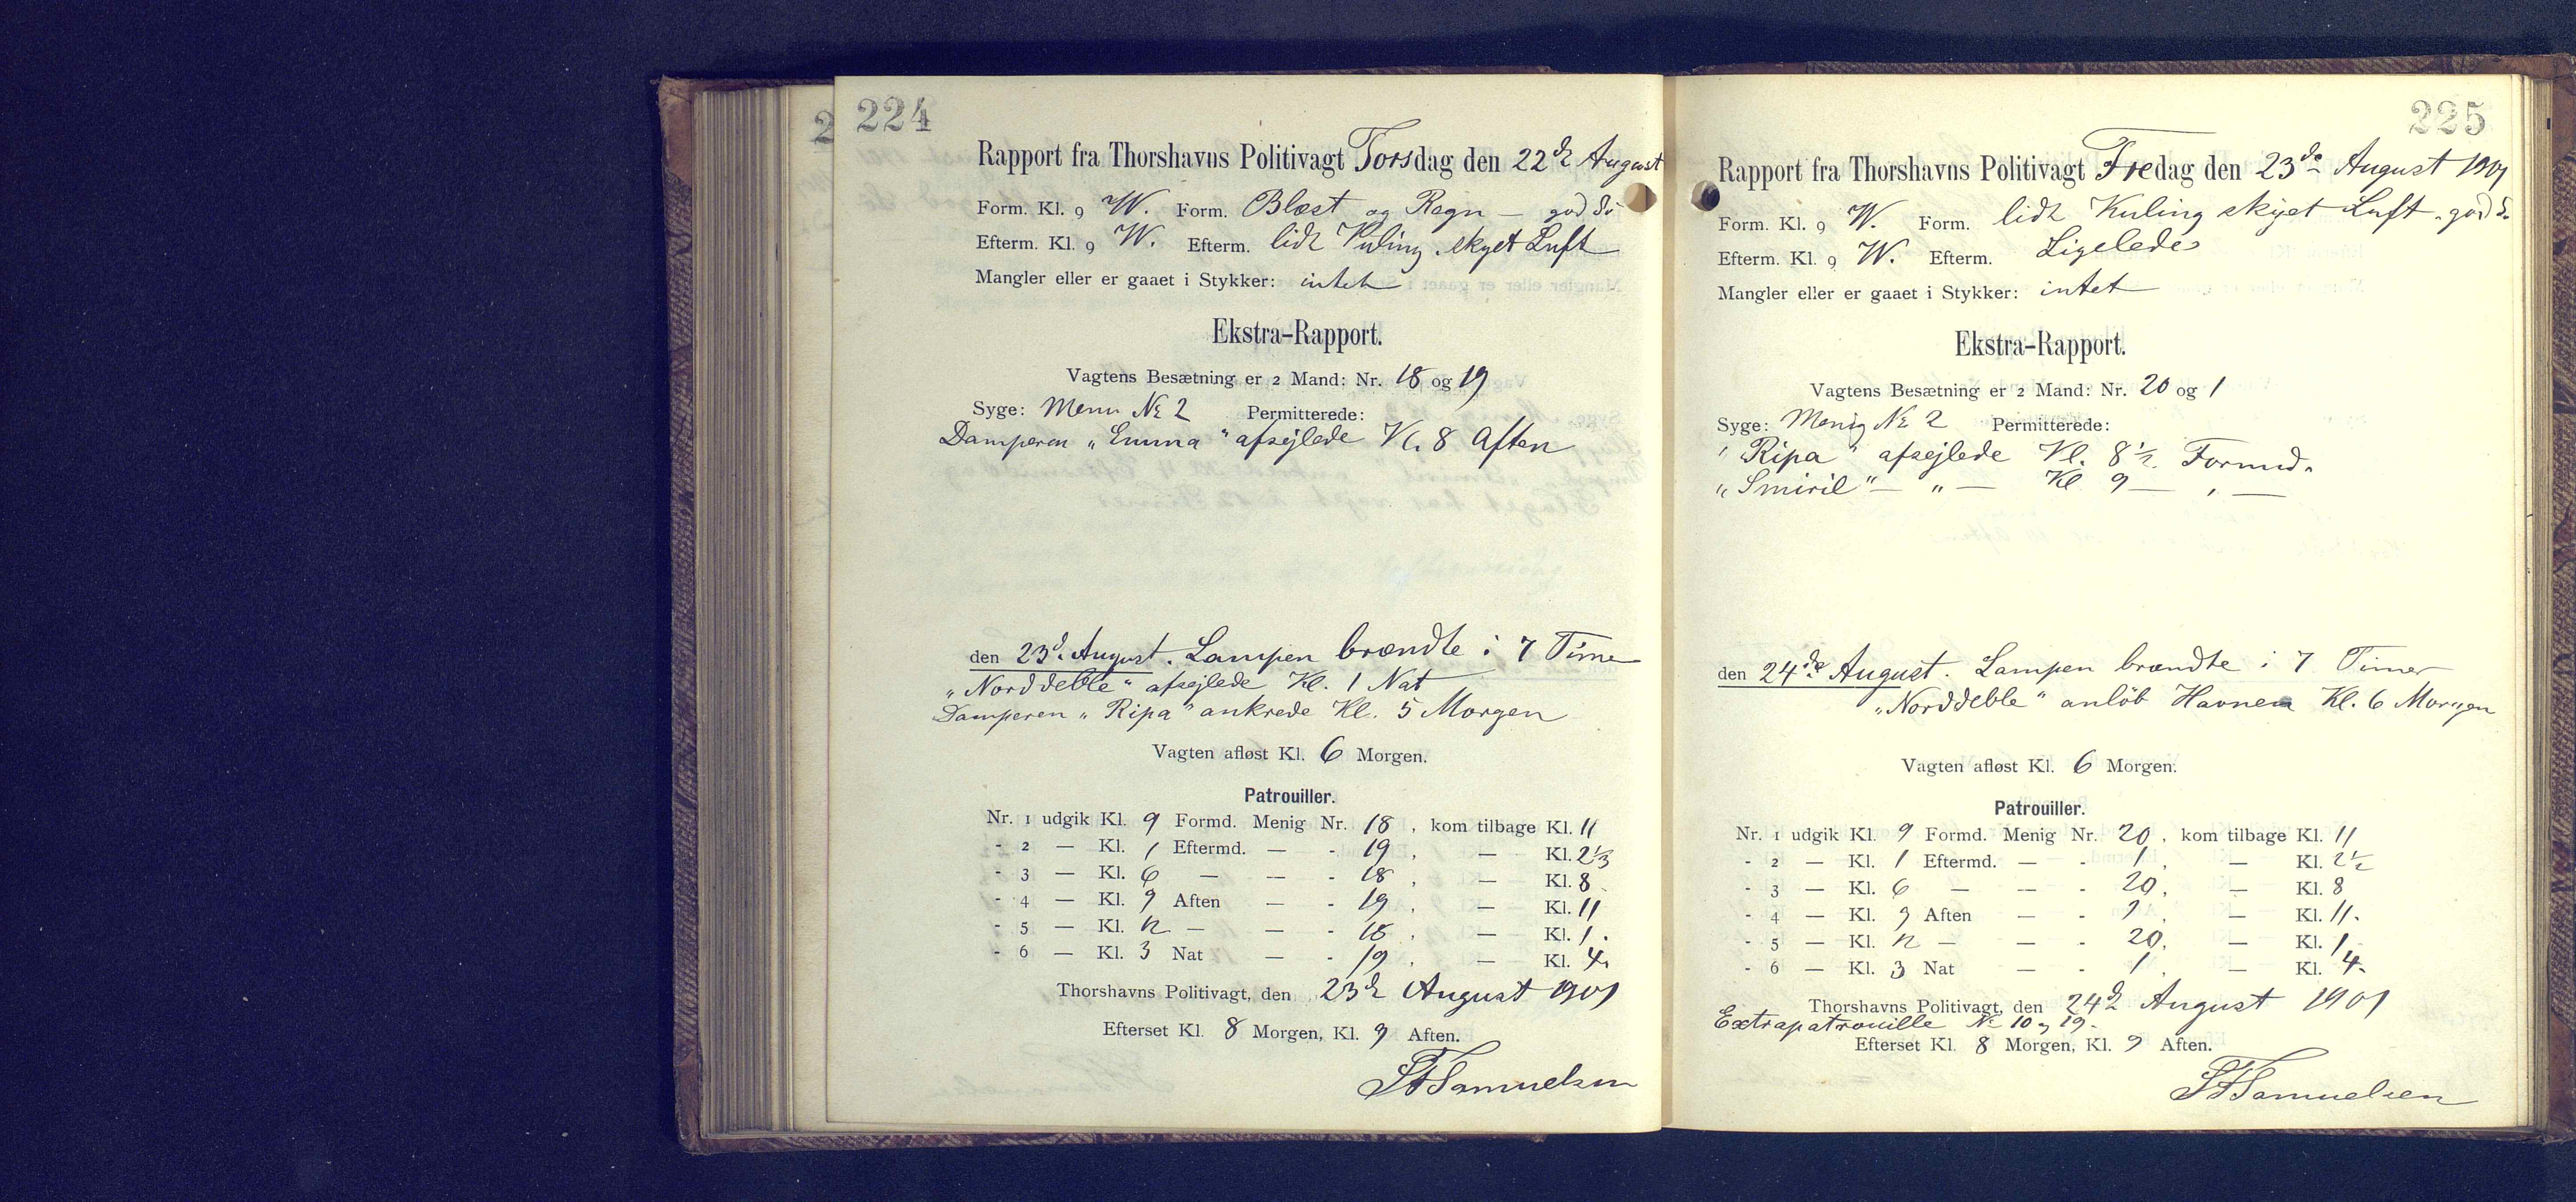 224
Rapport fra Thorshavns Politivagt Torsdag den 22d August
Form. Kl. 9 W. Form. Blæst og Regn - god Sø
Efterm. Kl. 9 W. Efterm. lidt Kuling. skyet Luft
Mangler eller er gaaet i Stykker: intet
Ekstra-Rapport.
Vagtens Besætning er 2 Mand: Nr. 18 og 19
Syge: № 2 Permitterede:
Damperen „Emma" afsejlede Kl. 8 Aften
den 23d. August. Lampen brændte i 7 Timer
„Norddeble" afsejlede Kl. 1 Nat
Damperen „Ripa" ankrede Kl. 5 Morgen
Vagten afløst Kl. 6 Morgen.
Patrouiller.
Nr. 1 udgik Kl. 9 Formd. Menig Nr. 18, kom tilbage Kl. 11
- 2 — Kl. 1 Eftermd. — - 19, — Kl. 2⅓
- 3 — Kl. 6 — — - 18, — Kl. 8
- 4 — Kl. 9 Aften — - 19, — Kl. 11
- 5 — Kl. 12 — — - 18, — Kl. 1.
- 6 — Kl. 3 Nat — - 19, — Kl. 4.
Thorshavns Politivagt, den 23d August 1901
Efterset Kl. 8 Morgen, Kl. 9 Aften.
Samuelsen
225
Rapport fra Thorshavns Politivagt Fredag den 23de August 1901
Form. Kl. 9 W. Form. lidt Kuling skyet Luft. god S.
Efterm. Kl. 9 W. Efterm. Ligelede
Mangler eller er gaaet i Stykker: intet
Ekstra-Rapport.
Vagtens Besætning er 2 Mand: Nr. 20 og 1
Syge: Menig № 2 Permitterede:
„Ripa" afsejlede Kl. 8½ Formd.
„Smiril" — „ — Kl 9 — „ —
den 24de August. Lampen brændte i 7 Timer
„Norddeble" anløb Havnen Kl. 6 Morgen
Vagten afløst Kl. 6 Morgen.
Patrouiller.
Nr. 1 udgik Kl. 9 Formd. Menig Nr. 20, kom tilbage Kl. 11
- 2 — Kl. 1 Eftermd. — - 1, — Kl. 2½
- 3 — Kl. 6 — — - 20, — Kl. 8
- 4 — Kl. 9 Aften — - 1, — Kl. 11.
- 5 — Kl. 12 — — - 20, — Kl. 1.
- 6 — Kl. 3 Nat — - 1, — Kl. 4.
Thorshavns Politivagt, den 24d August 1901
Extrapatrouille № 10 og 19.
Efterset Kl. 8 Morgen, Kl. 9 Aften.
Samuelsen